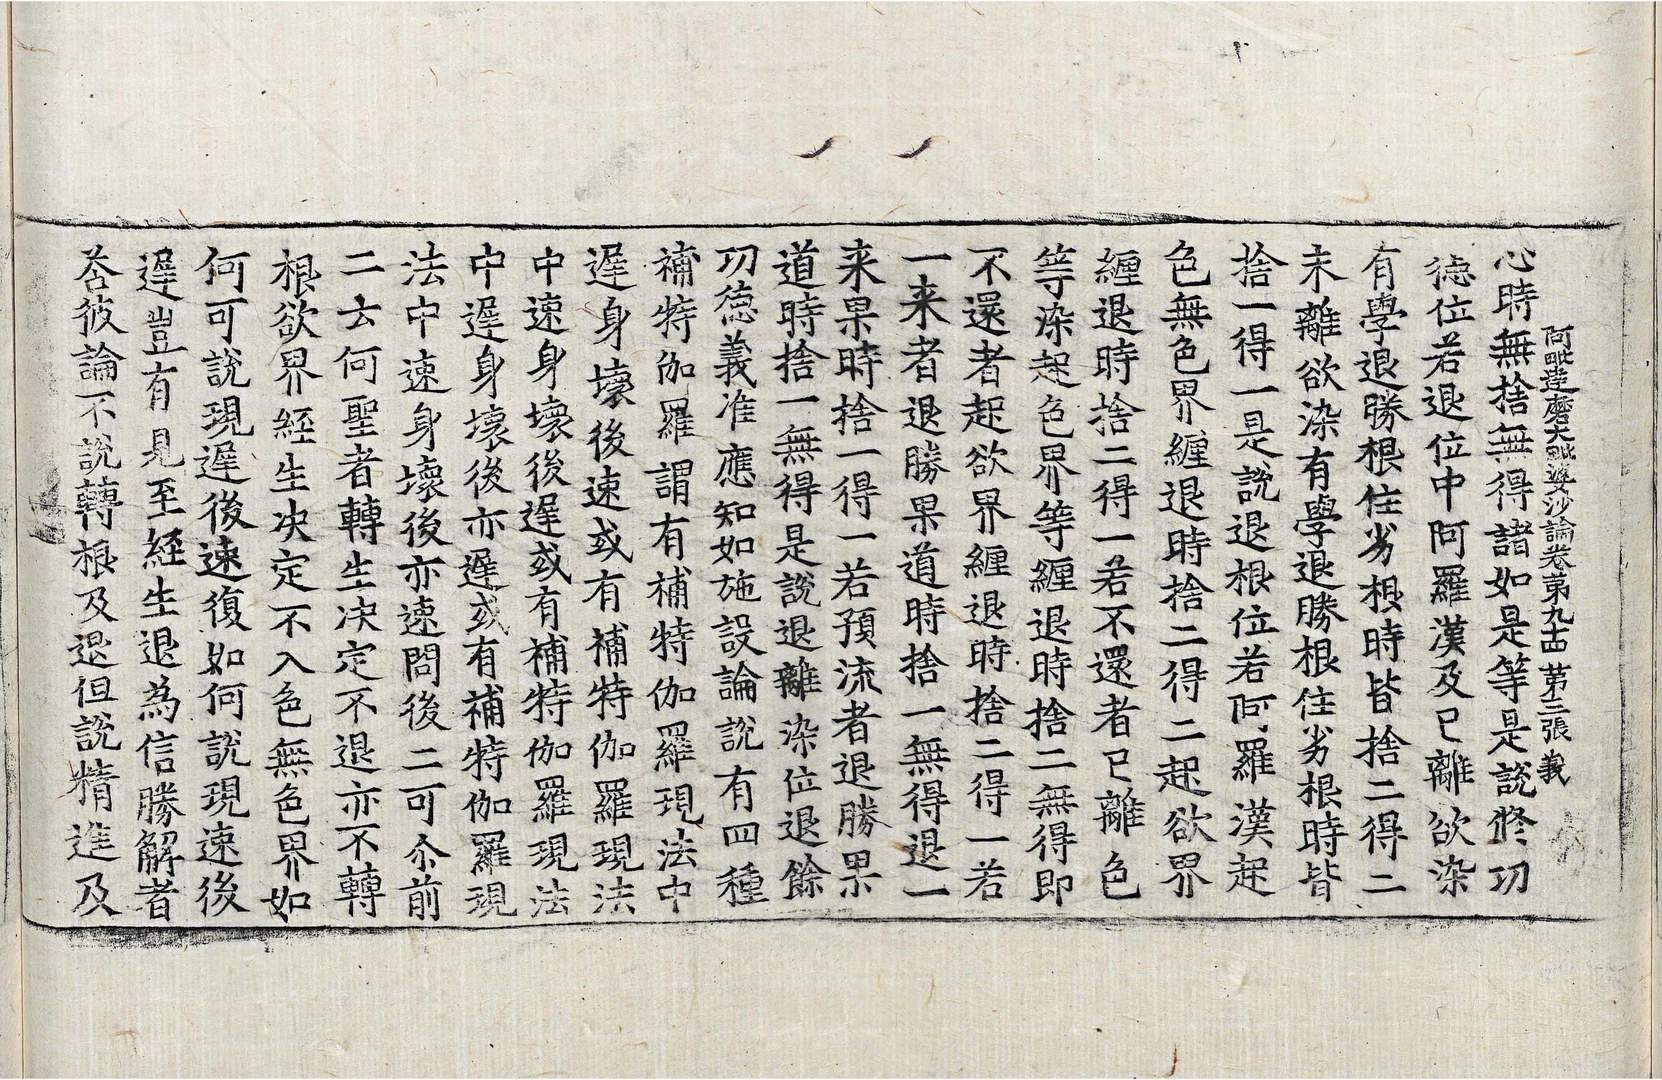 阿毗達磨大毗婆沙論卷第九十四 第三張 義
心時無捨無得諸如是等是說修功
德位若退位中阿羅漢及已離欲染
有學退勝根住劣根時皆捨二得二
未離欲染有學退勝根住劣根時皆
捨一得一是說退根位若阿羅漢起
色無色界纏退時捨二得二起欲界
纏退時捨二得一若不還者已離色
等染起色界等纏退時捨二無得即
不還者起欲界纏退時捨二得一若
一来者退勝果道時捨一無得退一
来果時捨一得一若預流者退勝果
道時捨一無得是說退離染位退餘
功德義准應知如施設論說有四種
補特伽羅謂有補特伽羅現法中
遲身壞後速或有補特伽羅現法
中速身壞後遲或有補特伽羅現法
中遲身壞後亦遲或有補特伽羅現
法中速身壞後亦速問後二可尒前
二云何聖者轉生決定不退亦不轉
根欲界經生決定不入色無色界如
何可說現遲後速復如何說現速後
遲豈有見至經生退為信勝解者
荅彼論不說轉根及退但說精進及